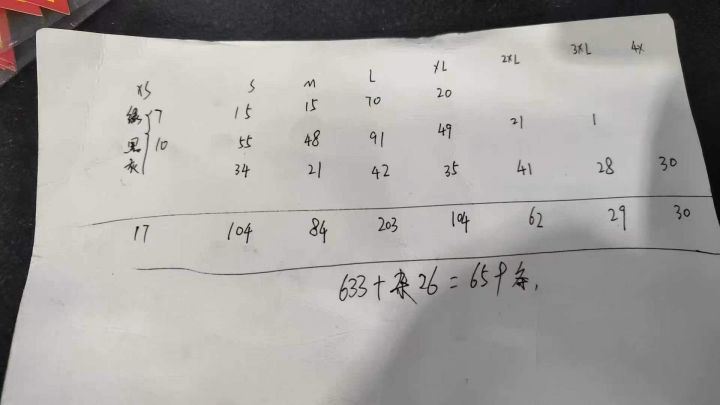 XS S M L XL 2XL 3XL 4X
绿 7 15 15 70 20
黑 10 55 48 91 49 21 1
灰 34 21 42 35 41 28 30
17 104 84 203 104 62 29 30
633+杂26=659条.